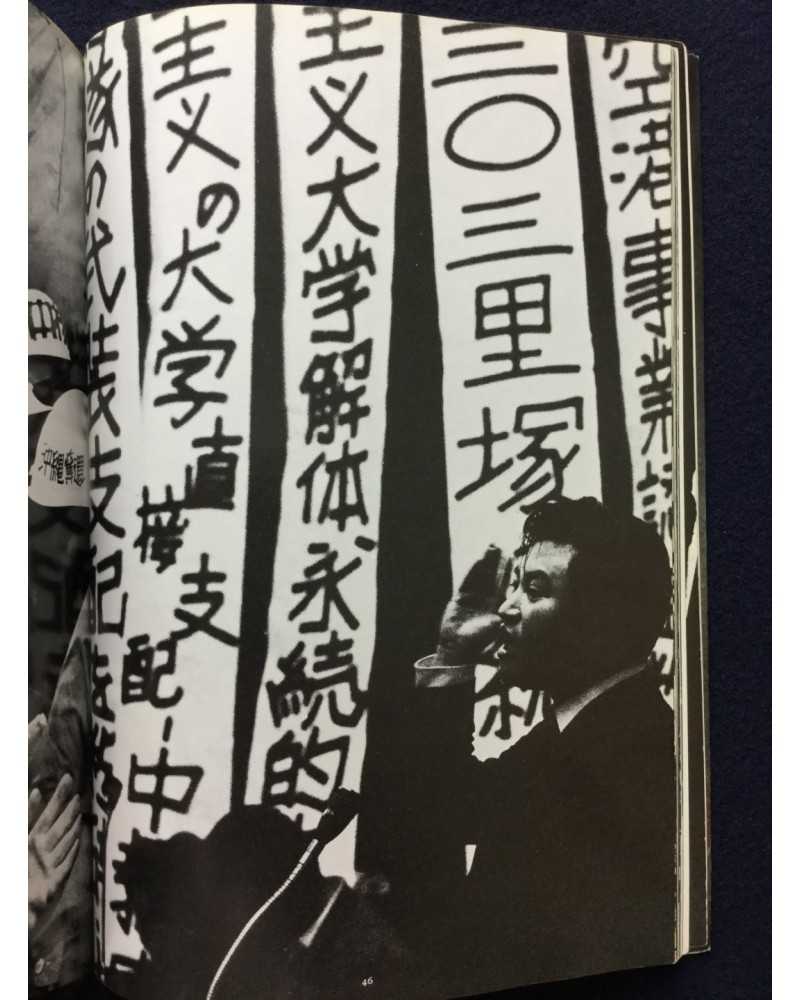 空港事業認
三〇三里塚
主义大学解体永続的
主义の大学直接支配-中
隊の武装支配
沖縄奪還
46